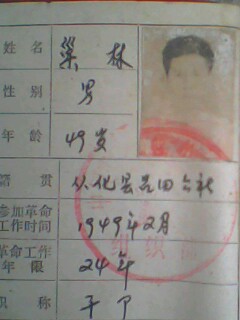 姓 名 梁 林
性 别 男
年 龄 49岁
籍 贯 从化县 公社
参加革命
工作时间 1949年2月
革命工作
年 限 24年
职 称 干
组织